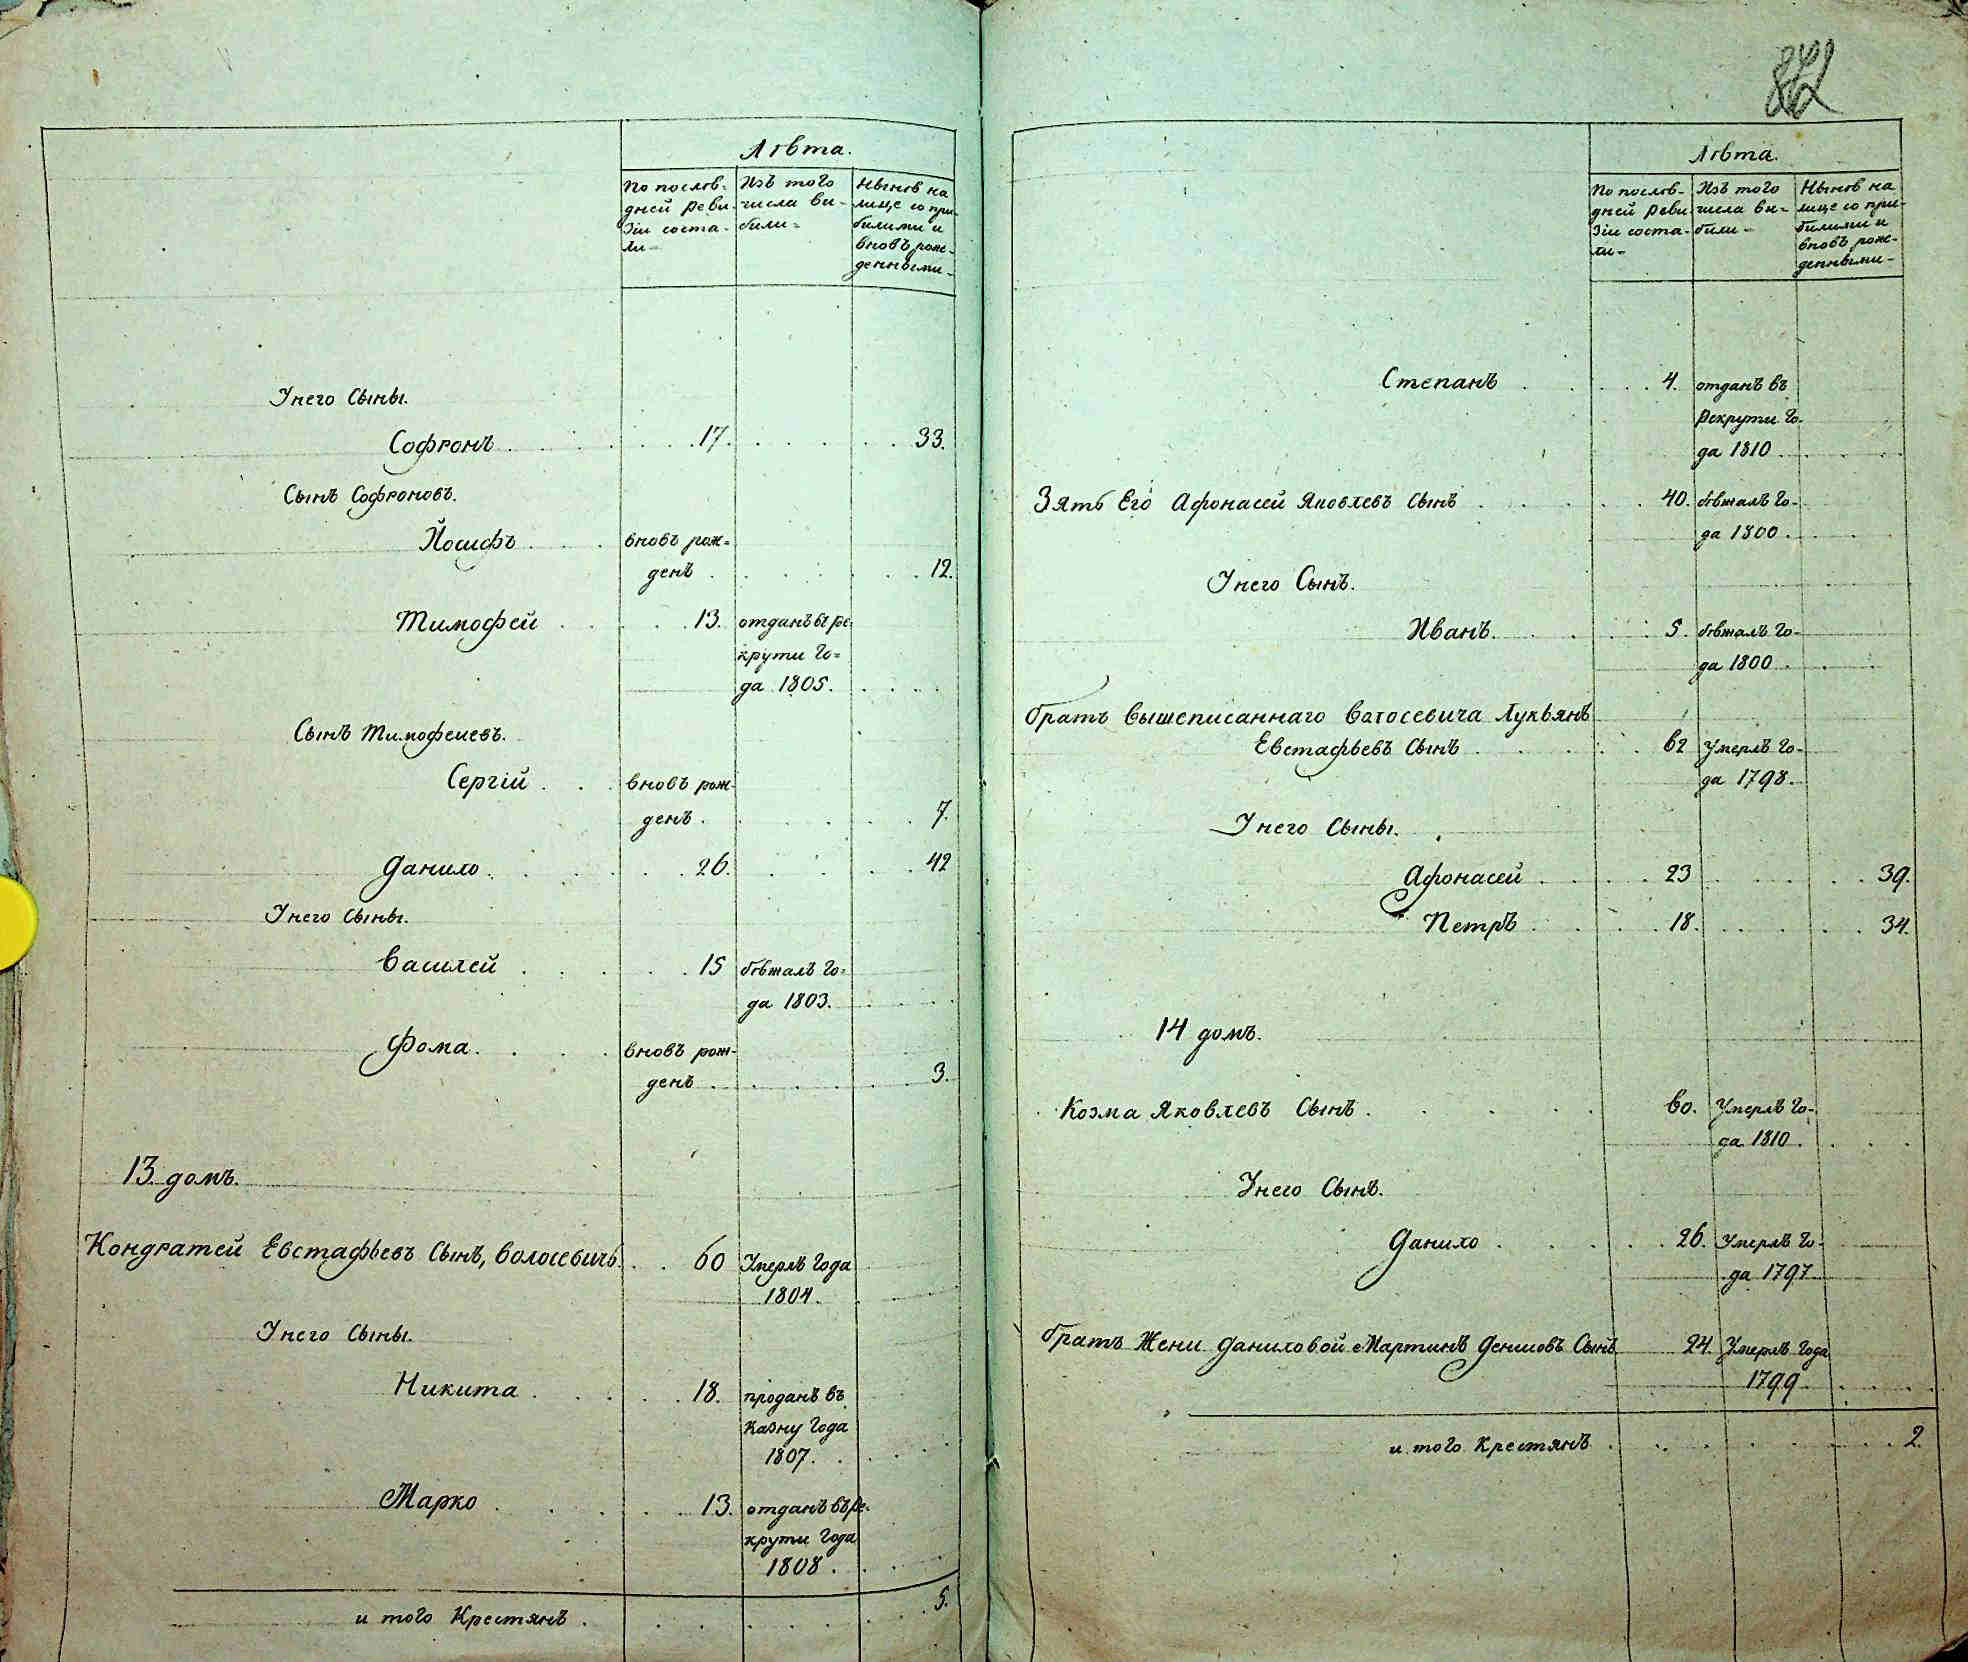 Лѣта.
По послѣ- Изъ того Нынѣ на
дней Реви- числа вы- лице со при-
зіи соста- были- былыми и
ли- вновъ рож-
денными-
Унего Сыны.
Софронъ 17. 33.
Сынъ Софроновъ.
Йосифъ вновъ рож-
денъ 12.
Тимофей 13. отданъ въ ре-
крути го-
да 1805.
Сынъ Тимофеиевъ.
Сергій вновъ рож-
денъ 7.
Данило 26. 42
Унего Сыны.
Василей 15 бѣжалъ го-
да 1803.
Фома вновъ рож-
денъ 3.
13. домъ.
Кондратей Евстафьевъ Сынъ, Волосевичъ 60 Умерлъ года
1804.
Унего Сыны.
Никита 18. проданъ въ
Казну года
1807.
Марко 13. отданъ въ ре-
крути года
1808.
и того Крестянъ 5.
Лѣта.
По послѣ- Изъ того Нынѣ на
дней Реви числа вы- лице со при-
зіи соста- были- былыми и
ли- вновъ рож-
денными-
Степанъ 4. отданъ въ
Рекрути го-
да 1810
Зять Его Афонасей Яковлевъ Сынъ 40. бѣжалъ го-
да 1800.
Унего Сынъ.
Иванъ. 5. бѣжалъ го-
да 1800.
братъ вышеписаннаго Волосевича Лукьянъ
Евстафьевъ Сынъ 62 Умерлъ го-
да 1798.
Унего Сыны.
Афонасей 23 39.
Петръ 18. 34.
14 домъ.
Козма Яковлевъ Сынъ. 60. Умерлъ го-
да 1810.
Унего Сынъ.
Данило 26. Умерлъ го-
да 1797
братъ Жени Даниловой Мартинъ Денисовъ Сынъ 24. Умерлъ года
1799.
и того Крестянъ 2.